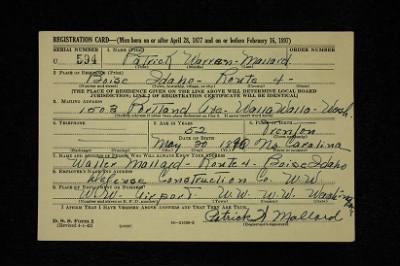 REGISTRATION CARD—(Men born on or after April 28, 1877 and on or before February 16, 1897)
SERIAL NUMBER 1. NAME (Print)
U 594 Patrick Warren Mallard
2. PLACE OF RESIDENCE (Print)
Boise Idaho - Route 4 -
[THE PLACE OF RESIDENCE GIVEN ON THE LINE ABOVE WILL DETERMINE LOCAL BOARD
JURISDICTION; LINE 2 OF REGISTRATION CERTIFICATE WILL BE IDENTICAL]
3. MAILING ADDRESS
1508 Portland Ave - Walla Walla - Wash.
4. TELEPHONE 5. AGE IN YEARS 6. PLACE OF BIRTH
52 Trenton
DATE OF BIRTH
May 30 1890 No. Carolina
7. NAME AND ADDRESS OF PERSON WHO WILL ALWAYS KNOW YOUR ADDRESS
Walter Mallard - Route 4 - Boise Idaho
8. EMPLOYER'S NAME AND ADDRESS
Defense Construction Co. W.W.
9. PLACE OF EMPLOYMENT OR BUSINESS
W.W. Airport W.W. W.W. Wash.
I AFFIRM THAT I HAVE VERIFIED ABOVE ANSWERS AND THAT THEY ARE TRUE.
D. S. S. Form 1
(Revised 4-1-42)
Patrick W Mallard